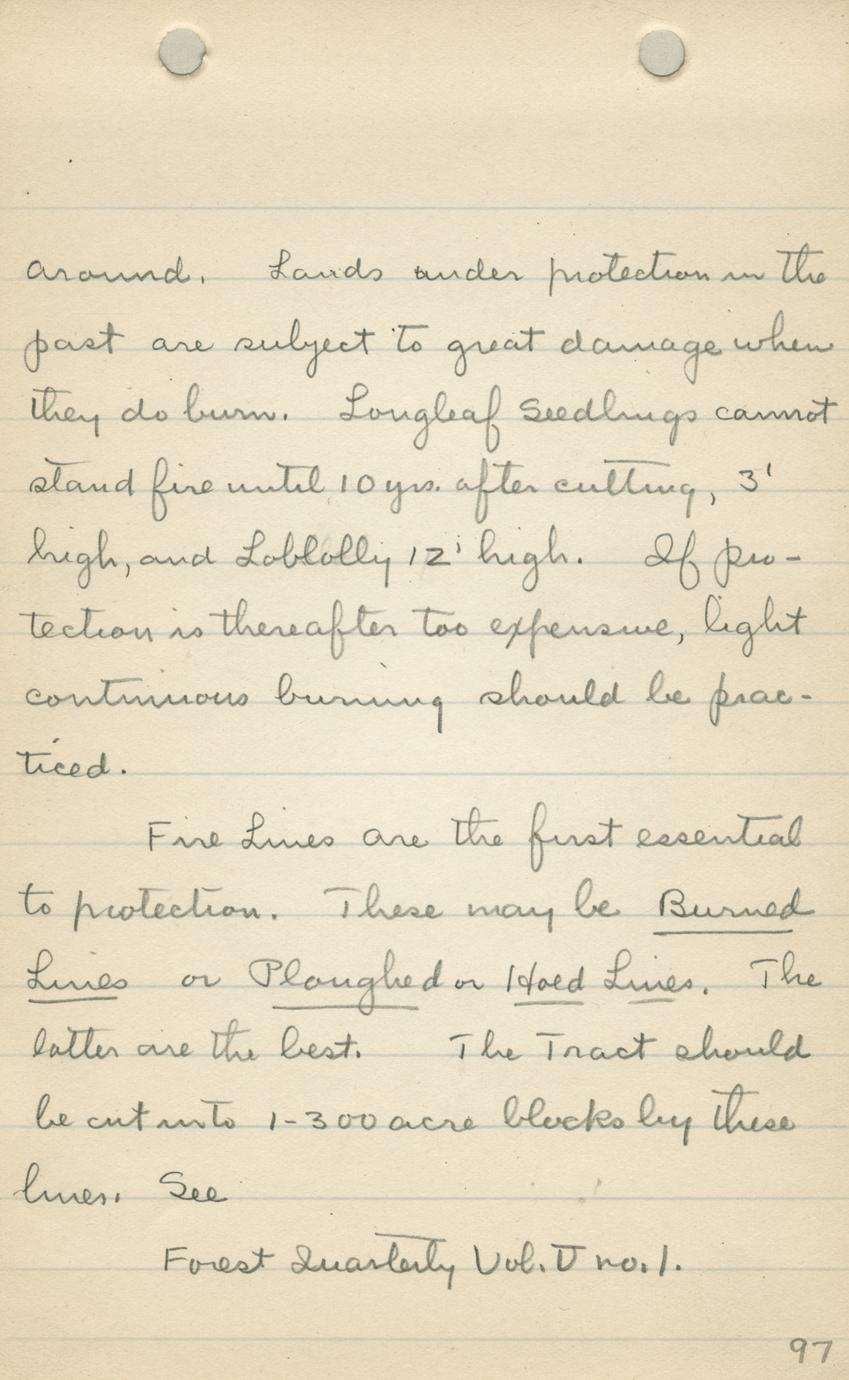 around. Lands under protection in the
past are subject to great damage when
they do burn. Longleaf seedlings cannot
stand fire until 10 yrs. after cutting, 3'
high, and Loblolly 12' high. If pro-
tection is thereafter too expensive, light
continuous burning should be prac-
ticed.
Fire Lines are the first essential
to protection. These may be Burned
Lines or Ploughed or Hoed Lines. The
latter are the best. The Tract should
be cut into 1-300 acre blocks by these
lines. See
Forest Quarterly Vol. V no. 1.
97